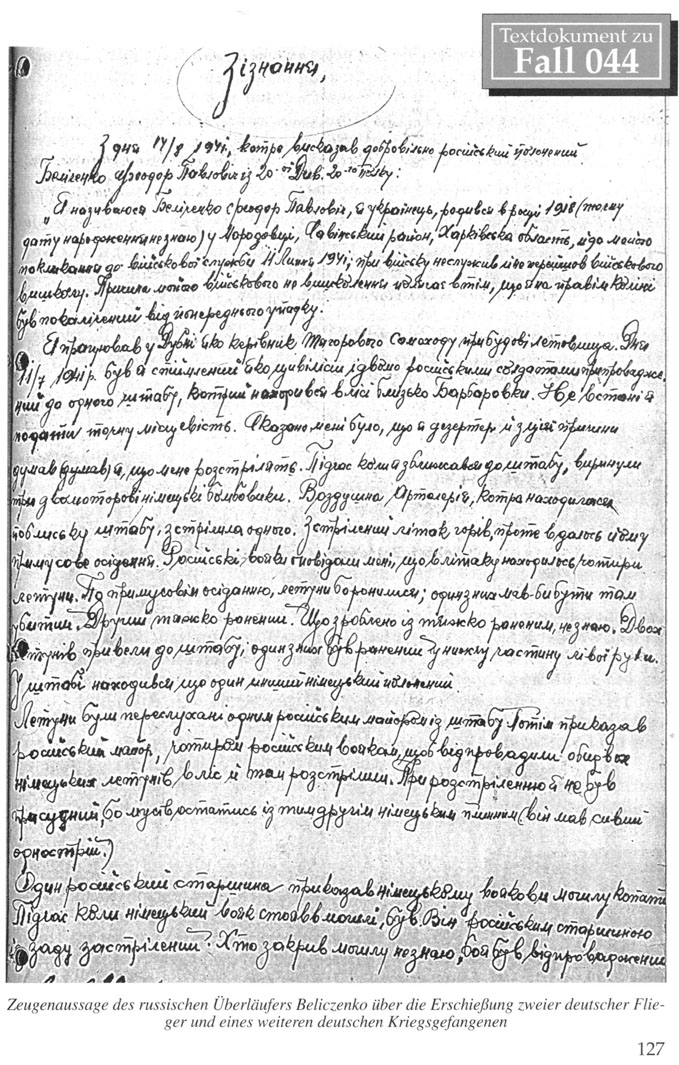 Textdokument zu
Fall 044
Зізнання,
З дня 17/8 1941, котре висказав добровільно російський полонений
Беліченко Теодор Павлович із 20-ої Див. 20-го Полку:
"Я називаюся Беліченко Теодор Павлович, я українець, родився в році 1918 (точну
дату народження незнаю) у район, Харківська область, і до мойого
покликання до військової служби 11 Липня 1941, при війську неслужив військового
вишколу. мойого військового не вишколення в тім, що я на правім коліні
був покалічений від попереднього
Я працював у Дубні яко керівник тягорового самоходу при будові летовища. Дня
11/7 1941 р. був я яко цивіліст двома російськими солдатами припровадже-
ний до одного штабу, котрий находився в лісі близько Барбаровки. Не в стані я
подати точну місцевість. Сказано мені було, що я дезертер і з цієї причини
думав (думав) я, що мене розстрілять. Підчас коли я зближався до штабу, виринули
три двомоторові німецькі бомбовики. Воздушна Арталерія, котра находилася
поблиську штабу, зстрілила одного. Зстрілений літак горів, проте вдалось йому
примусове осідення. Російські вояки оповідали мені, що в літаку находилось чотири
летуни. По примусовім осіданню, летуни боронилися; один з них мав-би бути там
убитий. Другий тяжко ранений. Що зроблено із тяжко раненим, не знаю. Двох
летунів привели до штабу, один з них був ранений у нижну частину лівої руки.
У штабі находився що один инший німецький полонений.
Летуни були переслухані одним російським майором із штабу. Потім приказав
російський майор, чотирьом російским воякам, щоб відпровадили обидвох
німецьких летунів в ліс і там розстріляли. При розстрілению я не був
присудний, бо мусів остатись із тим другім німецьким (він мав сивий
однострій.)
Один російський старшина приказав німецькому воякови могилу копати
Підчас коли німецький вояк стояв в могилі, був Він російським старшиною
ззаду застрілений. Хто закрив могилу не знаю, бо я був відпроваджений
Zeugenaussage des russischen Überläufers Beliczenko über die Erschießung zweier deutscher Flie-
ger und eines weiteren deutschen Kriegsgefangenen
127